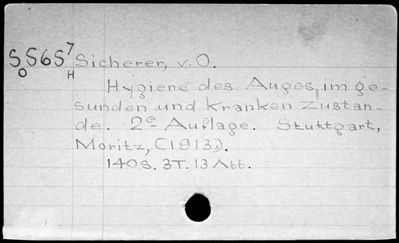 S565⁷ Sicherer, v. O.
O H
Hygiene des Auges im ge-
sunden und kranken Zustan-
de. 2e Auflage. Stuttgart,
Moritz, (1913).
140S. 3T. 13 Abt.